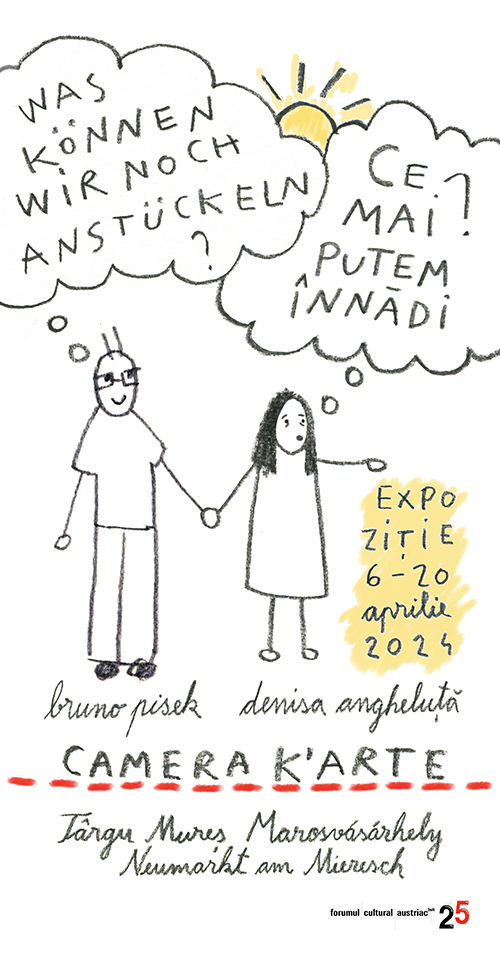 WAS
KÖNNEN
WIR NOCH
ANSTÜCKELN
?
CE
MAI?
PUTEM
ÎNNĂDI
EXPO
ZIȚIE
6-20
aprilie
2024
bruno pisek
denisa angheluță
CAMERA K'ARTE
Târgu Mures Marosvásárhely
Neumarkt am Mieresch
forumul cultural austriac
25